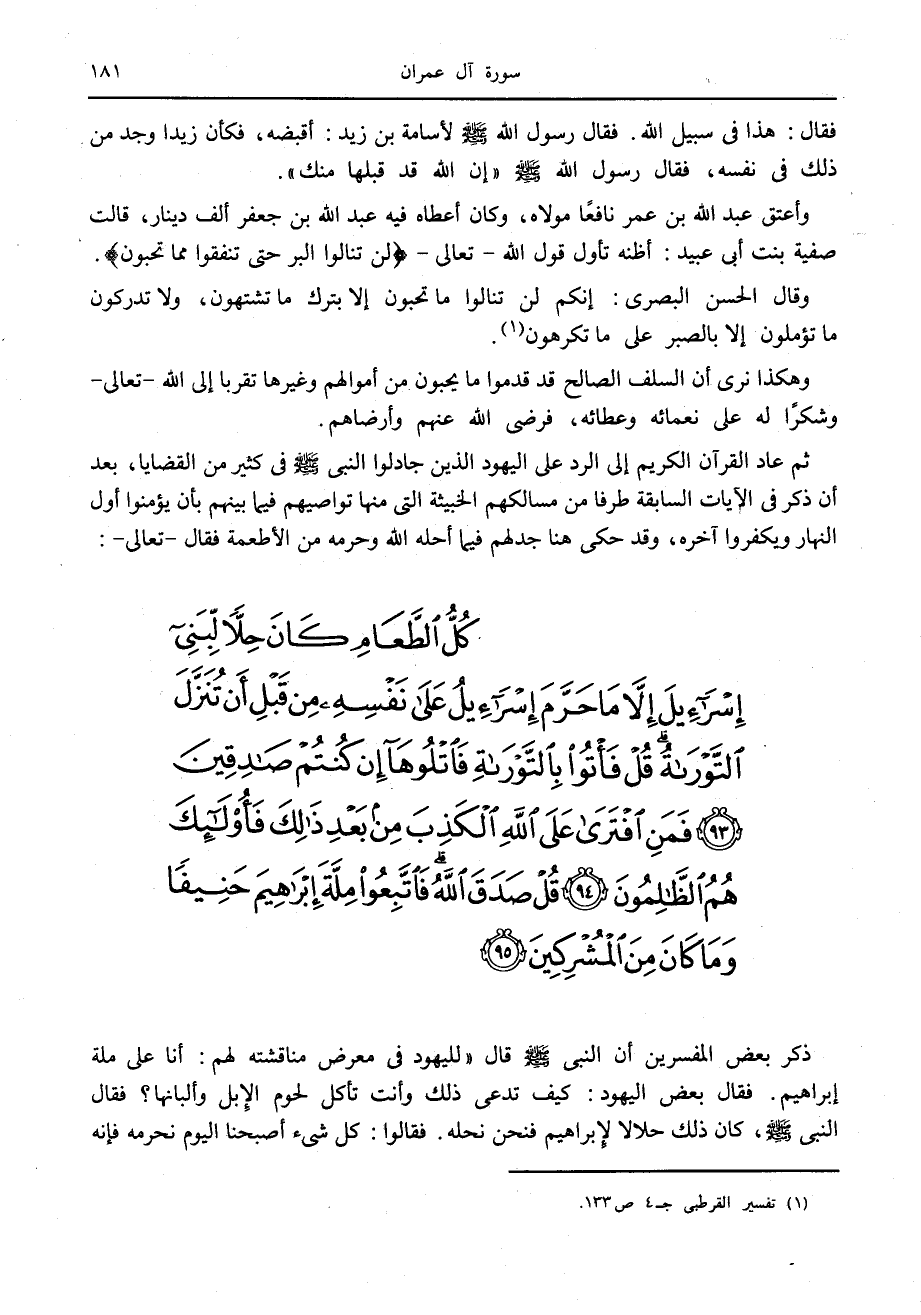 سورة آل عمران ١٨١
فقال : هذا فى سبيل الله . فقال رسول الله ﷺ لأسامة بن زيد : أقبضه ، فكأن زيدا وجد من
ذلك فى نفسه ، فقال رسول الله ﷺ «إن الله قد قبلها منك» .
وأعتق عبد الله بن عمر نافعًا مولاه ، وكان أعطاه فيه عبد الله بن جعفر ألف دينار ، قالت
صفية بنت أبى عبيد : أظنه تأول قول الله - تعالى - ﴿لن تنالوا البر حتى تنفقوا مما تحبون﴾ .
وقال الحسن البصرى : إنكم لن تنالوا ما تحبون إلا بترك ما تشتهون ، ولا تدركون
ما تؤملون إلا بالصبر على ما تكرهون(١) .
وهكذا نرى أن السلف الصالح قد قدموا ما يحبون من أموالهم وغيرها تقربا إلى الله -تعالى-
وشكرًا له على نعمائه وعطائه ، فرضى الله عنهم وأرضاهم .
ثم عاد القرآن الكريم إلى الرد على اليهود الذين جادلوا النبى ﷺ فى كثير من القضايا ، بعد
أن ذكر فى الآيات السابقة طرفا من مسالكهم الخبيثة التى منها تواصيهم فيما بينهم بأن يؤمنوا أول
النهار ويكفروا آخره ، وقد حكى هنا جدلهم فيما أحله الله وحرمه من الأطعمة فقال -تعالى- :
كُلُّ ٱلطَّعَامِ كَانَ حِلًّا لِّبَنِىٓ
إِسْرَٰٓءِيلَ إِلَّا مَا حَرَّمَ إِسْرَٰٓءِيلُ عَلَىٰ نَفْسِهِۦ مِن قَبْلِ أَن تُنَزَّلَ
ٱلتَّوْرَىٰةُ ۗ قُلْ فَأْتُوا۟ بِٱلتَّوْرَىٰةِ فَٱتْلُوهَآ إِن كُنتُمْ صَٰدِقِينَ
٩٣ فَمَنِ ٱفْتَرَىٰ عَلَى ٱللَّهِ ٱلْكَذِبَ مِنۢ بَعْدِ ذَٰلِكَ فَأُو۟لَٰٓئِكَ
هُمُ ٱلظَّٰلِمُونَ ٩٤ قُلْ صَدَقَ ٱللَّهُ ۗ فَٱتَّبِعُوا۟ مِلَّةَ إِبْرَٰهِيمَ حَنِيفًا
وَمَا كَانَ مِنَ ٱلْمُشْرِكِينَ ٩٥
ذكر بعض المفسرين أن النبى ﷺ قال «لليهود فى معرض مناقشته لهم : أنا على ملة
إبراهيم . فقال بعض اليهود : كيف تدعى ذلك وأنت تأكل لحوم الإبل وألبانها؟ فقال
النبى ﷺ ، كان ذلك حلالا لإبراهيم فنحن نحله . فقالوا : كل شىء أصبحنا اليوم نحرمه فإنه
(١) تفسير القرطبى جـ٤ ص١٣٣.